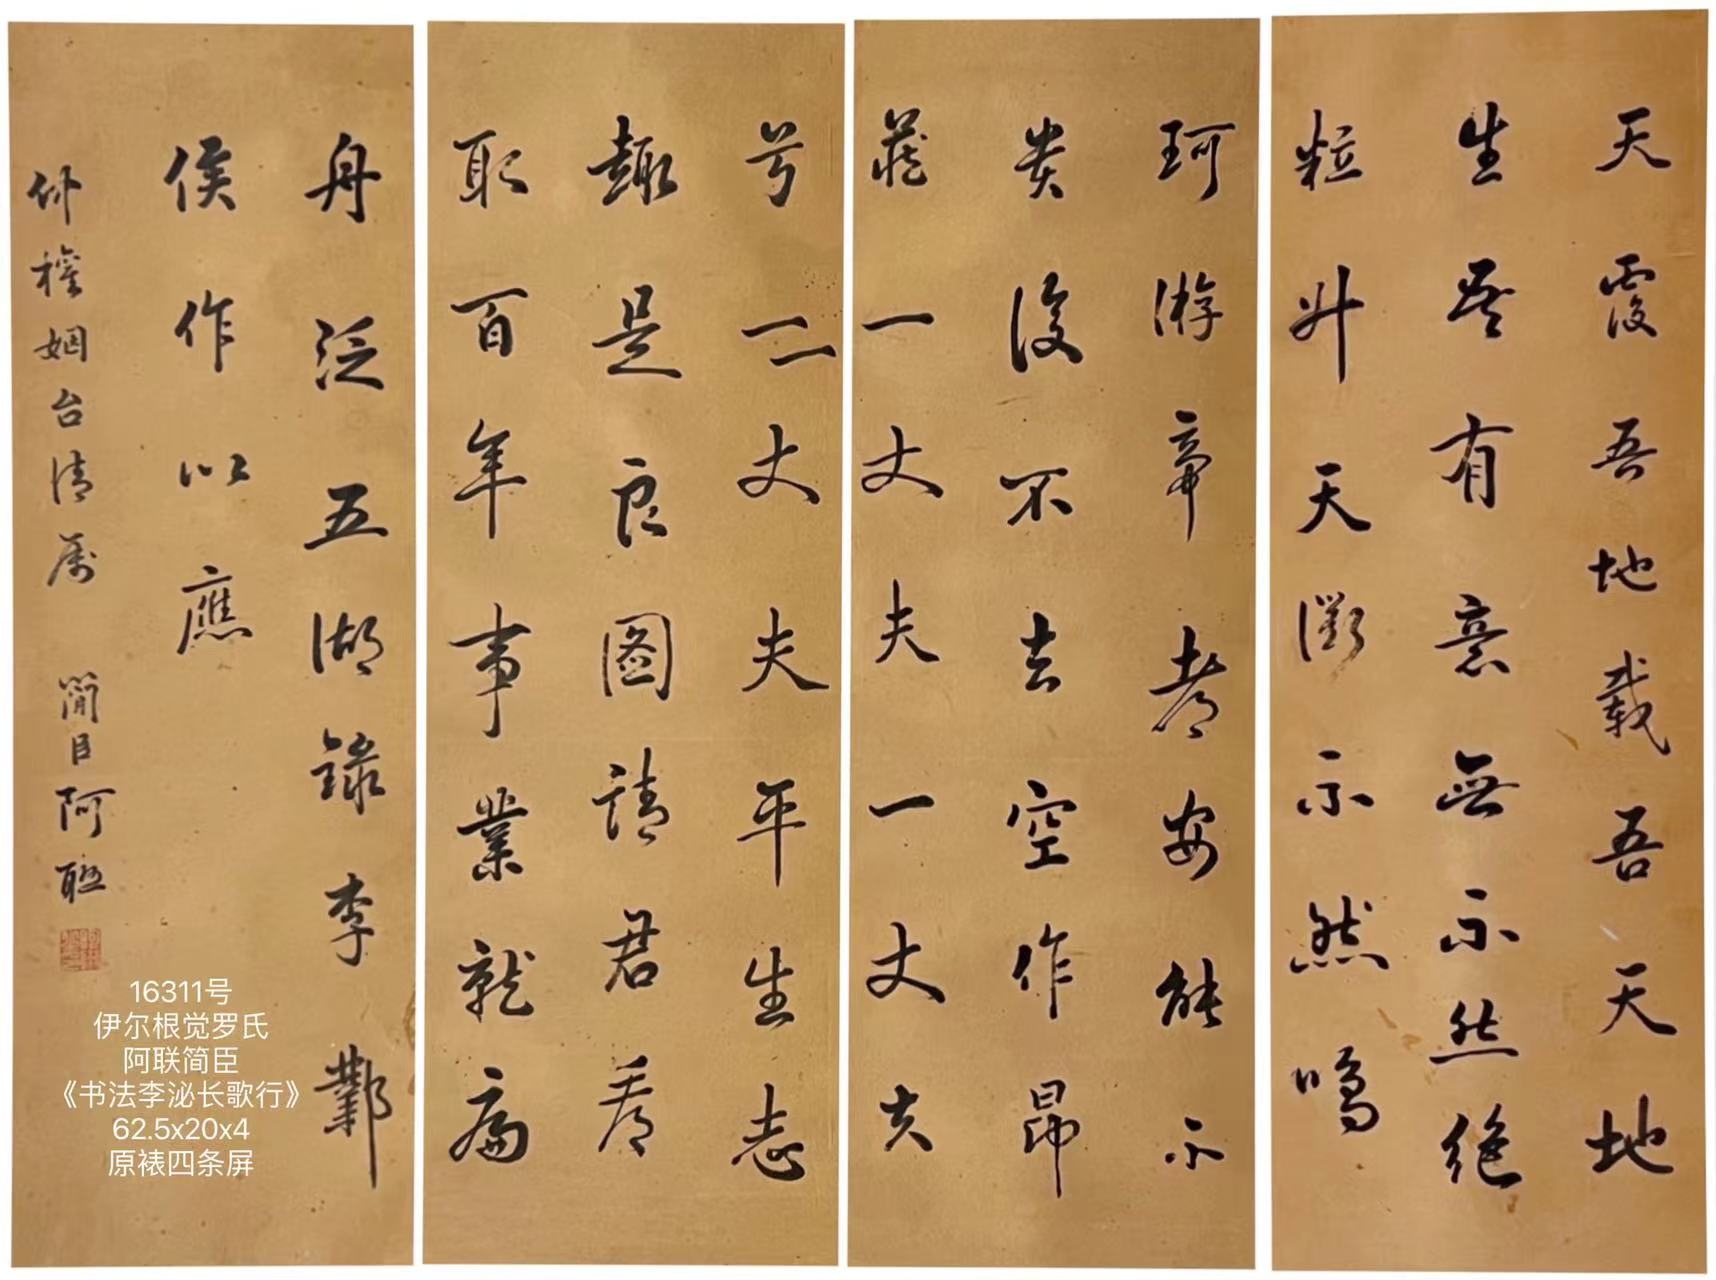 天覆吾地載吾天地
生吾有意無不然絕
粒昇天衢不然鳴
珂游帝都安能不
貴復不去空作昂
藏一丈夫一丈夫
兮一丈夫平生志
氣是良圖請君看
取百年事業就扁
舟泛五湖錄李鄴
侯作以應
仲穜姻台清屬 簡臣阿聯
16311号
伊尔根觉罗氏
阿联简臣
《书法李泌长歌行》
62.5x20x4
原裱四条屏